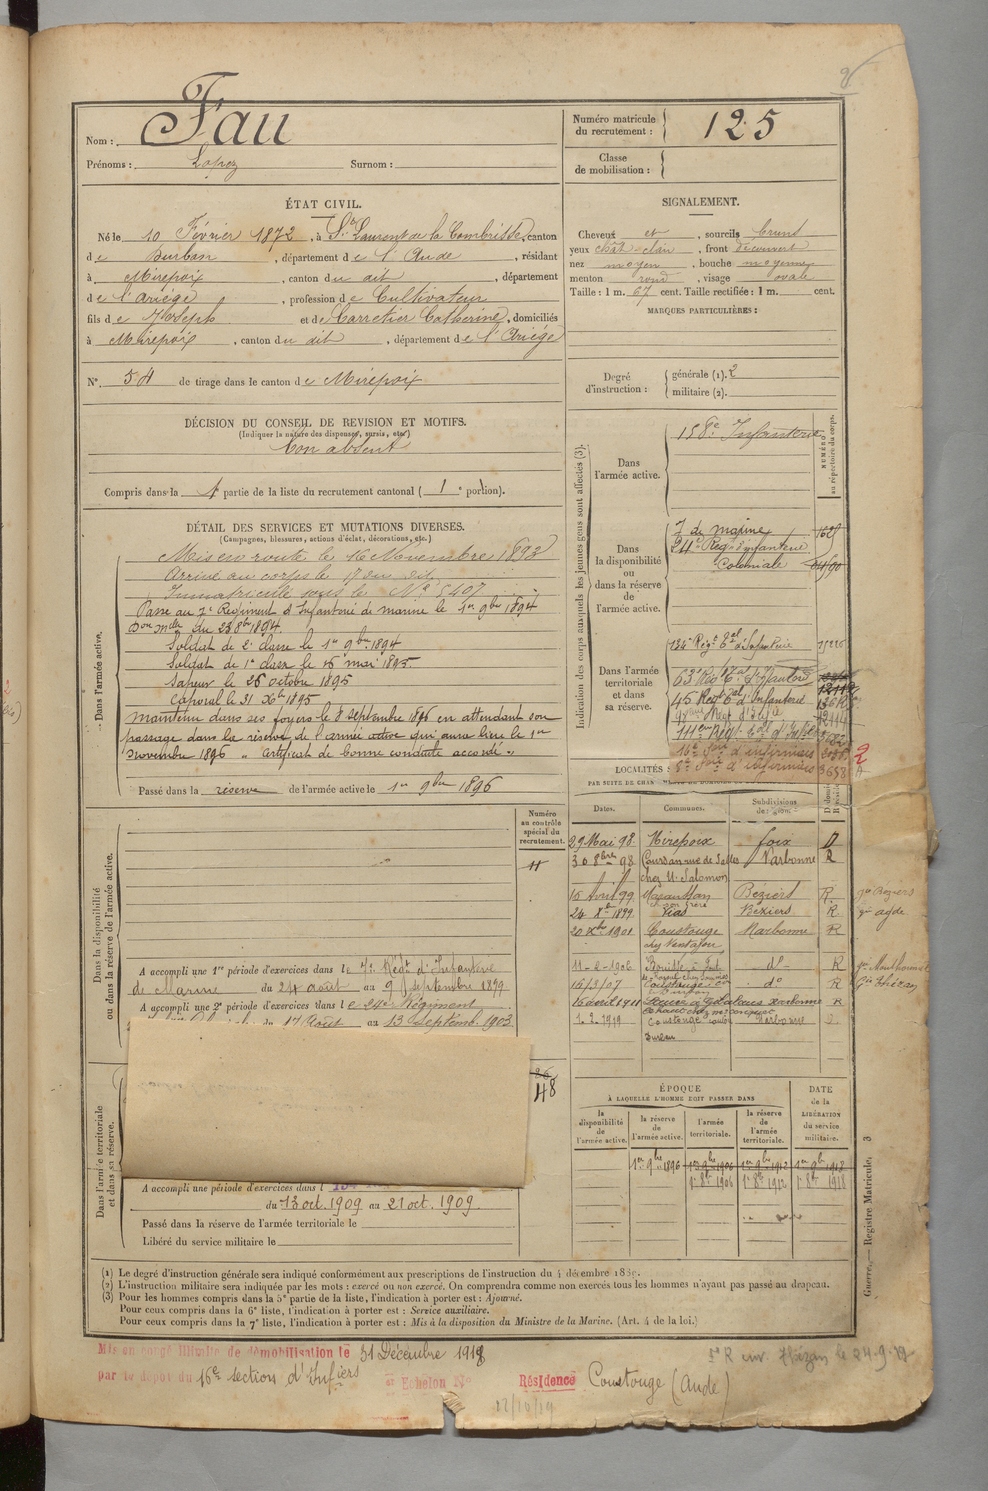 Nom : Fau
Prénoms : Lopez Surnom :
Numéro matricule du recrutement : 125
Classe de mobilisation :
ÉTAT CIVIL.
Né le 10 Février 1872, à St Laurent de la Cabrerisse, canton
de Durban, département de l'Aude, résidant
à Mirepoix, canton du dit, département
de l'Ariège, profession de Cultivateur
fils de Joseph et de Carretier Catherine, domiciliés
à Mirepoix, canton du dit, département de l'Ariège
N° 54 de tirage dans le canton de Mirepoix
SIGNALEMENT.
Cheveux et, sourcils bruns
yeux chât-clair, front découvert
nez moyen, bouche moyenne
menton rond, visage ovale
Taille : 1 m. 67 cent. Taille rectifiée : 1 m. cent.
MARQUES PARTICULIÈRES :
Degré d'instruction : générale (1). 2
militaire (2).
DÉCISION DU CONSEIL DE REVISION ET MOTIFS.
(Indiquer la nature des dispenses, sursis, etc.)
bon absent
Compris dans la 4 partie de la liste du recrutement cantonal ( 1 e portion).
DÉTAIL DES SERVICES ET MUTATIONS DIVERSES.
(Campagnes, blessures, actions d'éclat, décorations, etc.)
Dans l'armée active.
Mis en route le 16 Novembre 1893
Arrivé au corps le 17 du dit,
Immatriculé sous le N° 5407
Passé au 7e Régiment d'Infanterie de marine le 1er 9bre 1894
Don mlle du 23 8bre 1894.
Soldat de 2e classe le 1er 9bre 1894
Soldat de 1e classe le 16 mai 1895
Sapeur le 26 octobre 1895
Caporal le 31 Xbre 1895
maintenu dans ses foyers le 8 septembre 1896 en attendant son
passage dans la réserve de l'armée active qui aura lieu le 1er
novembre 1896 „ Certificat de bonne conduite accordé „
Passé dans la réserve de l'armée active le 1er 9bre 1896
Indication des corps auxquels les jeunes gens sont affectés (3).
NUMÉRO au répertoire du corps.
Dans l'armée active.
158e Infanterie
Dans la disponibilité ou dans la réserve de l'armée active.
7 de marine
24e Regt d'infanterie
Coloniale
Dans l'armée territoriale et dans sa réserve.
134e Régt Tal d'Infanterie
63e Regt Tal d'Infanterie
45 Regt Tal d'Infanterie
111e Régt Tal d'Infie
16e Son d'infirmiers
8e Son d'infirmiers
2
LOCALITÉS
Dates. Communes. Subdivisions de région.
29 Mai 98 Mirepoix Foix D
30 8bre 98 Coursan rue de Salles Narbonne R
chez Mr Salomon
15 Avril 99 Maraussan Béziers R
24 Xbre 1899 Vias Béziers R
20 Xbre 1901 Coustouge Narbonne R
11-2-1906 do R
16/3/07 Coustouge do R
16 avril 1911 Narbonne R
1.2.1919 Coustouge Narbonne
Durban
Gie Béziers
Gie agde
Gie Thézan
Dans la disponibilité ou dans la réserve de l'armée active.
Numéro au contrôle spécial du recrutement.
A accompli une 1re période d'exercices dans le 7e Régt d'Infanterie
de Marine du 24 août au 9 septembre 1899
A accompli une 2e période d'exercices dans le 24e Régiment
du 17 Août au 13 septemb. 1903
48
Dans l'armée territoriale et dans sa réserve.
A accompli une période d'exercices dans l
du 13 oct. 1909 au 21 oct. 1909
Passé dans la réserve de l'armée territoriale le
Libéré du service militaire le
ÉPOQUE
À LAQUELLE L'HOMME DOIT PASSER DANS
la disponibilité de l'armée active.
la réserve de l'armée active.
l'armée territoriale.
la réserve de l'armée territoriale.
DATE de la LIBÉRATION du service militaire.
1er 9bre 1896 1er 9bre 1906 1er 9bre 1912 1er 9bre 1918
1r 8bre 1906 1r 8bre 1912 1r 8bre 1918
Guerre. — Registre Matricule. 3
(1) Le degré d'instruction générale sera indiqué conformément aux prescriptions de l'instruction du 4 décembre 1889.
(2) L'instruction militaire sera indiquée par les mots : exercé ou non exercé. On comprendra comme non exercés tous les hommes n'ayant pas passé au drapeau.
(3) Pour les hommes compris dans la 5e partie de la liste, l'indication à porter est : Ajourné.
Pour ceux compris dans la 6e liste, l'indication à porter est : Service auxiliaire.
Pour ceux compris dans la 7e liste, l'indication à porter est : Mis à la disposition du Ministre de la Marine. (Art. 4 de la loi.)
Mis en congé illimité de démobilisation le 31 Décembre 1918
par le dépôt du 16e section d'Infiers Echelon N° Résidence Coustouge (Aude)
Thézan le 24-9-19
22/10/19